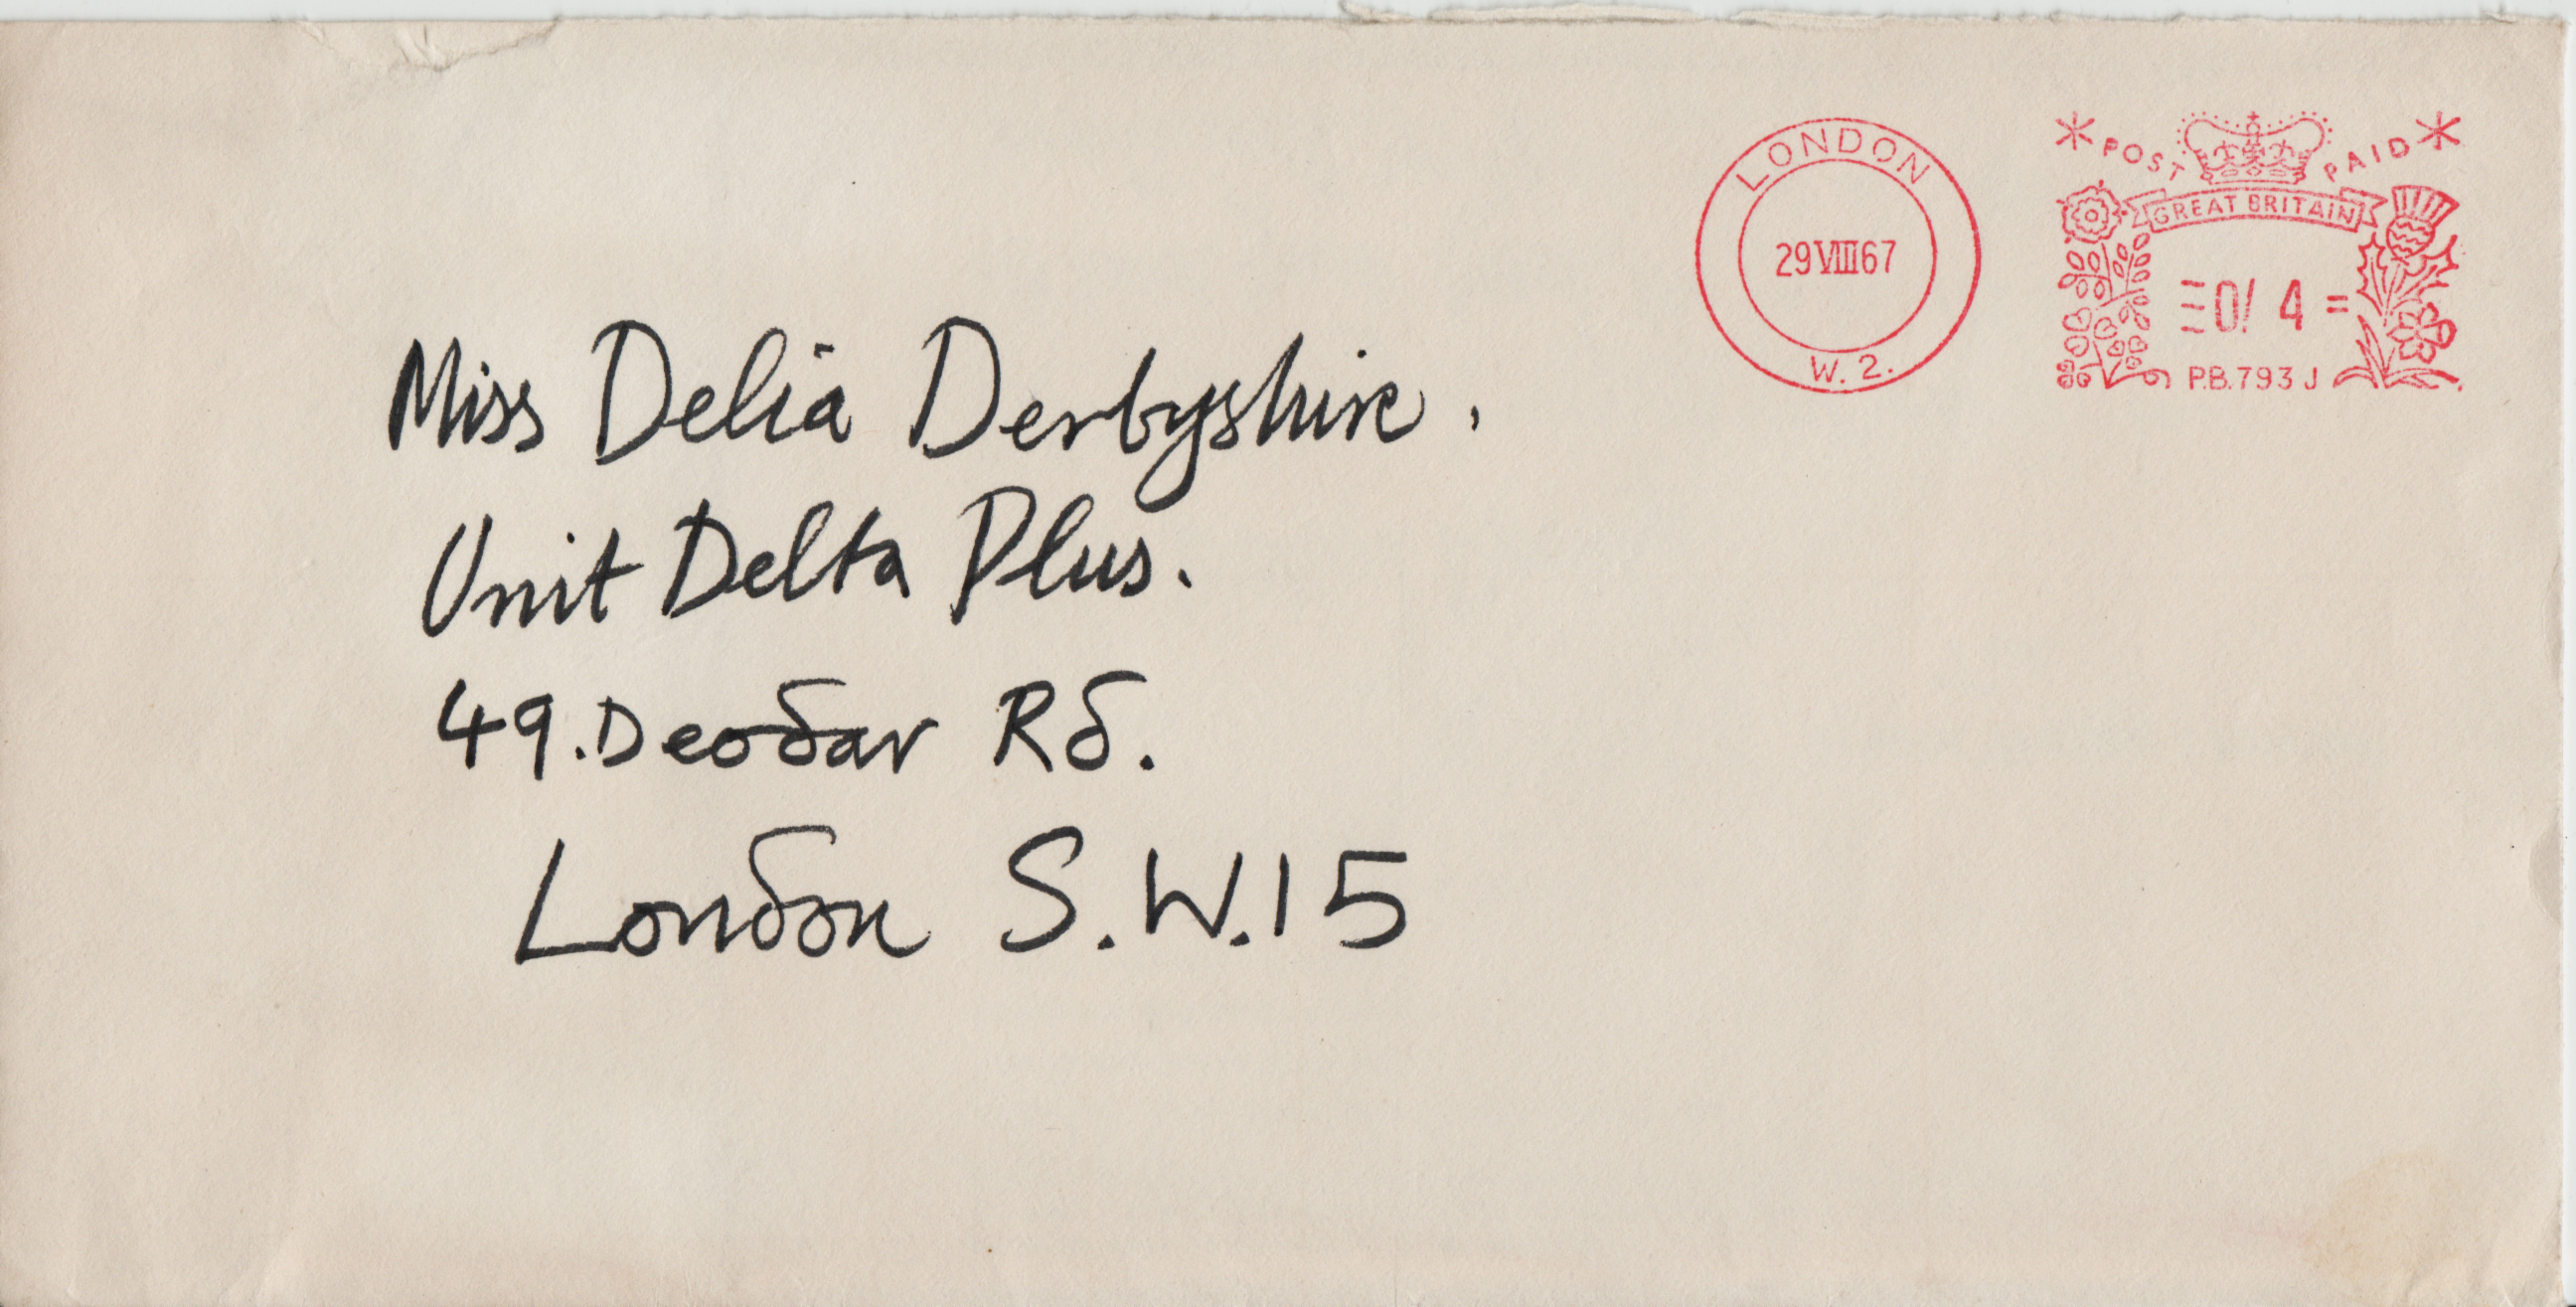 LONDON
29 VIII 67
W. 2.
POST PAID
GREAT BRITAIN
0/ 4
P.B.793 J
Miss Delia Derbyshire.
Unit Delta Plus.
49. Deodar Rd.
London S.W.15